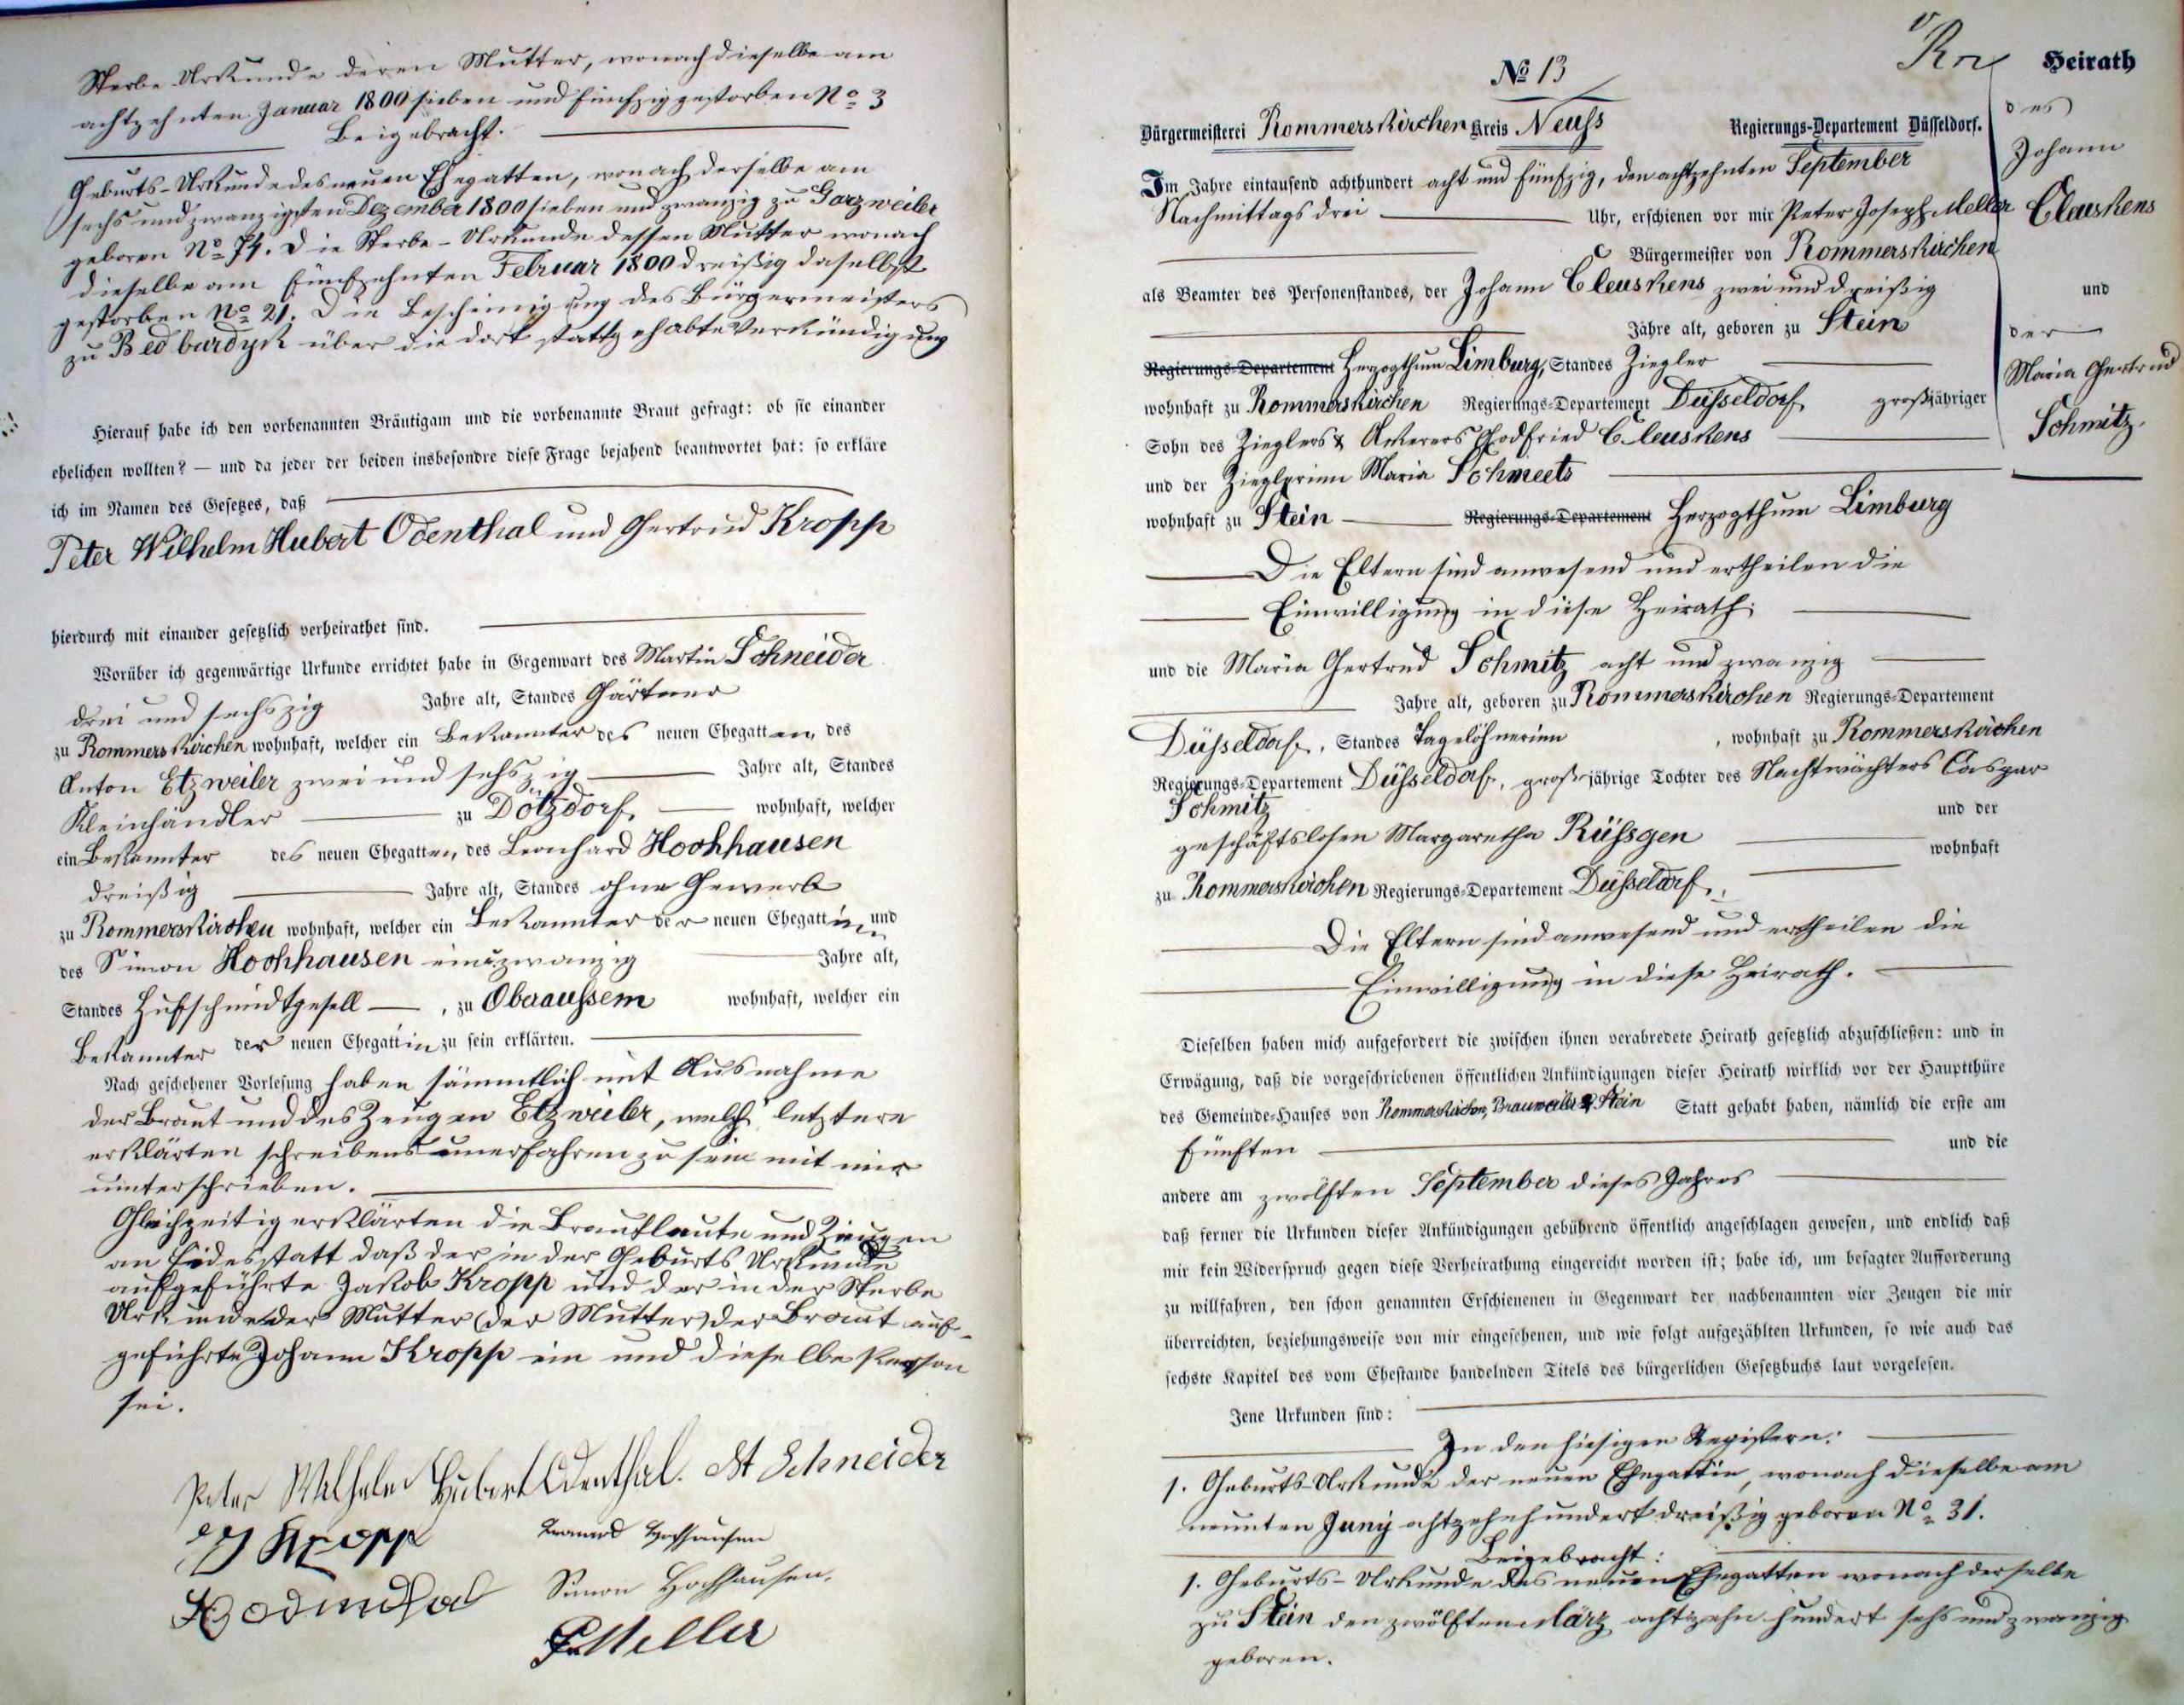 Sterbe-Urkunde deren Mutter, wonach dieselbe am
achtzehnten Januar 1800 sieben und fünfzig gestorben No 3
Beigebracht.
Geburts-Urkunde des neuen Ehegatten, wonach derselbe am
sechs und zwanzigsten Dezember 1800 sieben und zwanzig zu Garzweiler
geboren No 74. Die Sterbe-Urkunde dessen Mutter wonach
dieselbe am fünfzehnten Februar 1800 dreißig daselbst
gestorben No 21. Die Bescheinigung des Bürgermeisters
zu Bedburdyck über die dort stattgehabte Verkündigung
Hierauf habe ich den vorbenannten Bräutigam und die vorbenannte Braut gefragt: ob sie einander
ehelichen wollten? — und da jeder der beiden insbesondre diese Frage bejahend beantwortet hat: so erkläre
ich im Namen des Gesetzes, daß
Peter Wilhelm Hubert Odenthal und Gertrud Kropp
hierdurch mit einander gesetzlich verheirathet sind.
Worüber ich gegenwärtige Urkunde errichtet habe in Gegenwart des Martin Schneider
drei und sechszig Jahre alt, Standes Gärtner
zu Rommerskirchen wohnhaft, welcher ein Bekannter des neuen Ehegatten, des
Anton Etzweiler zwei und sechszig Jahre alt, Standes
Kleinhändler zu Dötzdorf, wohnhaft, welcher
ein Bekannter des neuen Ehegatten, des Leonhard Hochhausen
dreißig Jahre alt, Standes ohne Gewerb
zu Rommerskirchen wohnhaft, welcher ein Bekannter der neuen Ehegattin, und
des Simon Hochhausen ein&zwanzig Jahre alt,
Standes Hufschmidtgesell, zu Oberaussem wohnhaft, welcher ein
Bekannter der neuen Ehegattin zu sein erklärten.
Nach geschehener Vorlesung haben sämmtlich mit Ausnahme
der Braut und des Zeugen Etzweiler, welch letztere
erklärten schreibens unerfahren zu sein mit mir
unterschrieben.
Gleichzeitig erklärten die Brautleute und Zeugen
an Eidesstatt daß der in der Geburts Urkunde
aufgeführte Jakob Kropp und der in der Sterbe
Urkunde der Mutter (der Mutter) der Braut auf-
geführte Johann Kropp ein und dieselbe Person
sei.
Peter Wilhelm Hubert Odenthal. M Schneider
Kropp Leonard Hochhausen
Simon Hochhausen.
P. Meller
No 13
Heirath
des
Johann
Cleuskens
und
der
Maria Gertrud
Schmitz.
Bürgermeisterei Rommerskirchen Kreis Neuss Regierungs-Departement Düsseldorf.
Im Jahre eintausend achthundert acht und fünfzig, den achtzehnten September
Nachmittags drei Uhr, erschienen vor mir Peter Joseph Meller
Bürgermeister von Rommerskirchen
als Beamter des Personenstandes, der Johann Cleuskens zwei und dreißig
Jahre alt, geboren zu Stein
Regierungs-Departement Herzogthum Limburg, Standes Ziegler
wohnhaft zu Rommerskirchen Regierungs-Departement Düsseldorf, großjähriger
Sohn des Zieglers & Ackerers Godfried Cleuskens
und der Zieglerinn Maria Schmeets
wohnhaft zu Stein Regierungs-Departement Herzogthum Limburg
Die Eltern sind anwesend und ertheilen die
Einwilligung in diese Heirath;
und die Maria Gertrud Schmitz acht und zwanzig
Jahre alt, geboren zu Rommerskirchen Regierungs-Departement
Düsseldorf, Standes Tagelöhnerinn, wohnhaft zu Rommerskirchen
Regierungs-Departement Düsseldorf, großjährige Tochter des Nachtwächters Caspar
Schmitz und der
geschäftslosen Margaretha Rüssgen wohnhaft
zu Rommerskirchen Regierungs-Departement Düsseldorf,
Die Eltern sind anwesend und ertheilen die
Einwilligung in diese Heirath.
Dieselben haben mich aufgefordert die zwischen ihnen verabredete Heirath gesetzlich abzuschließen: und in
Erwägung, daß die vorgeschriebenen öffentlichen Ankündigungen dieser Heirath wirklich vor der Hauptthüre
des Gemeinde-Hauses von Rommerskirchen, Brauweiler & Stein Statt gehabt haben, nämlich die erste am
fünften und die
andere am zwölften September dieses Jahres
daß ferner die Urkunden dieser Ankündigungen gebührend öffentlich angeschlagen gewesen, und endlich daß
mir kein Widerspruch gegen diese Verheirathung eingereicht worden ist; habe ich, um besagter Aufforderung
zu willfahren, den schon genannten Erschienenen in Gegenwart der nachbenannten vier Zeugen die mir
überreichten, beziehungsweise von mir eingesehenen, und wie folgt aufgezählten Urkunden, so wie auch das
sechste Kapitel des vom Ehestande handelnden Titels des bürgerlichen Gesetzbuchs laut vorgelesen.
Jene Urkunden sind:
In den hiesigen Registern:
1. Geburts-Urkunde der neuen Ehegattin, wonach dieselbe am
neunten Juny achtzehnhundert dreißig geboren No 31.
Beigebracht:
1. Geburts-Urkunde des neuen Ehegatten wonach derselbe
zu Stein den zwölften März achtzehn hundert sechs und zwanzig
geboren.